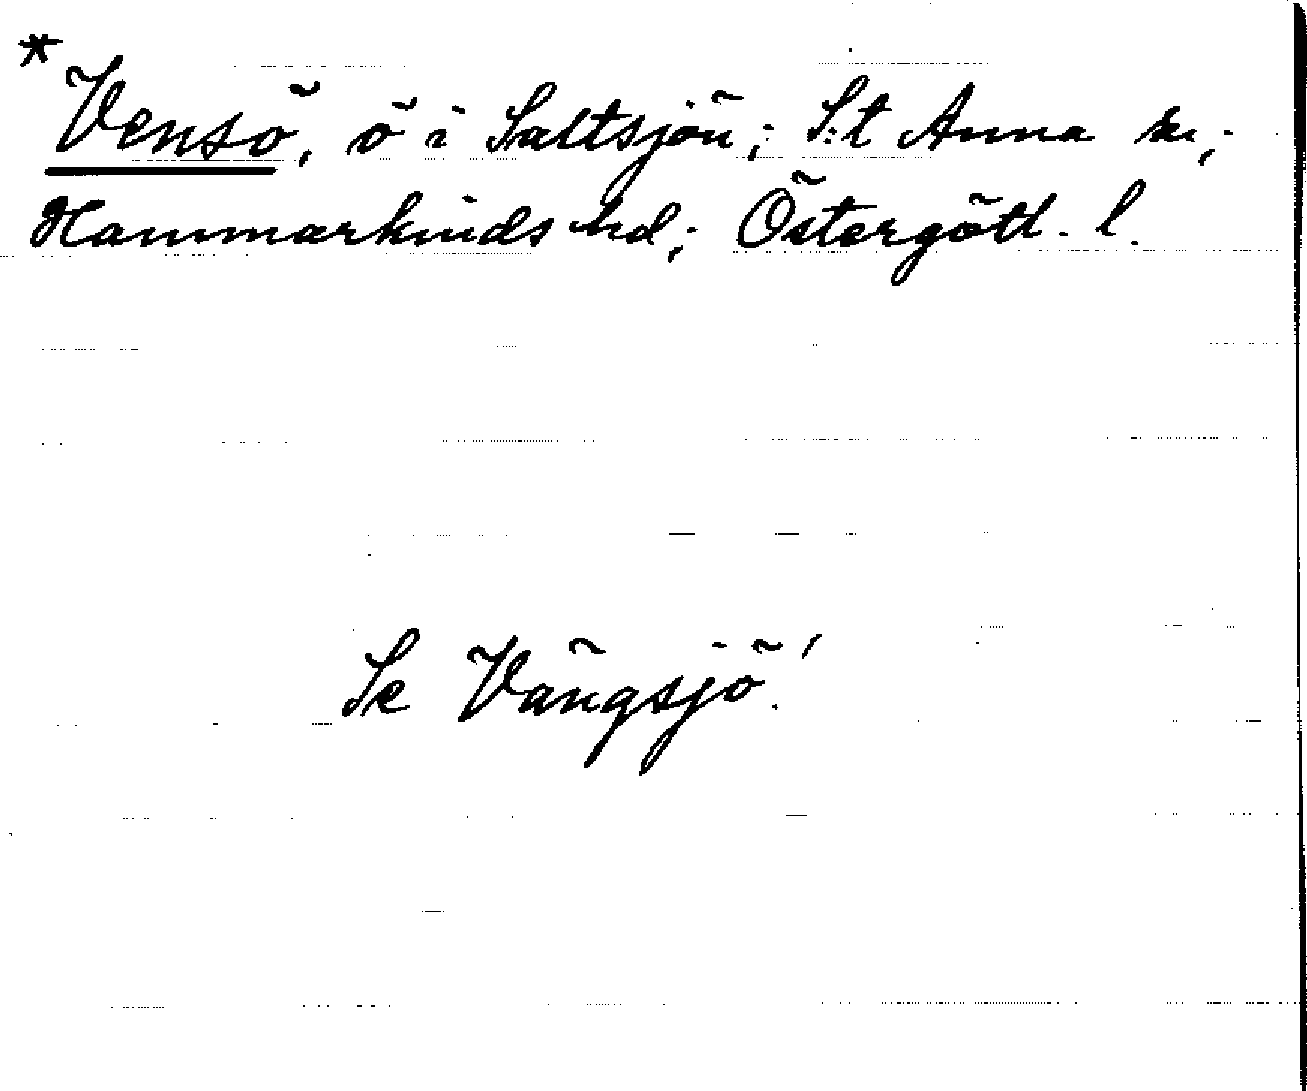 *Vensö, ö i Saltsjön; S:t Anna sn;
Hammarkinds hd; Östergötl. l.
Se Vängsjö!